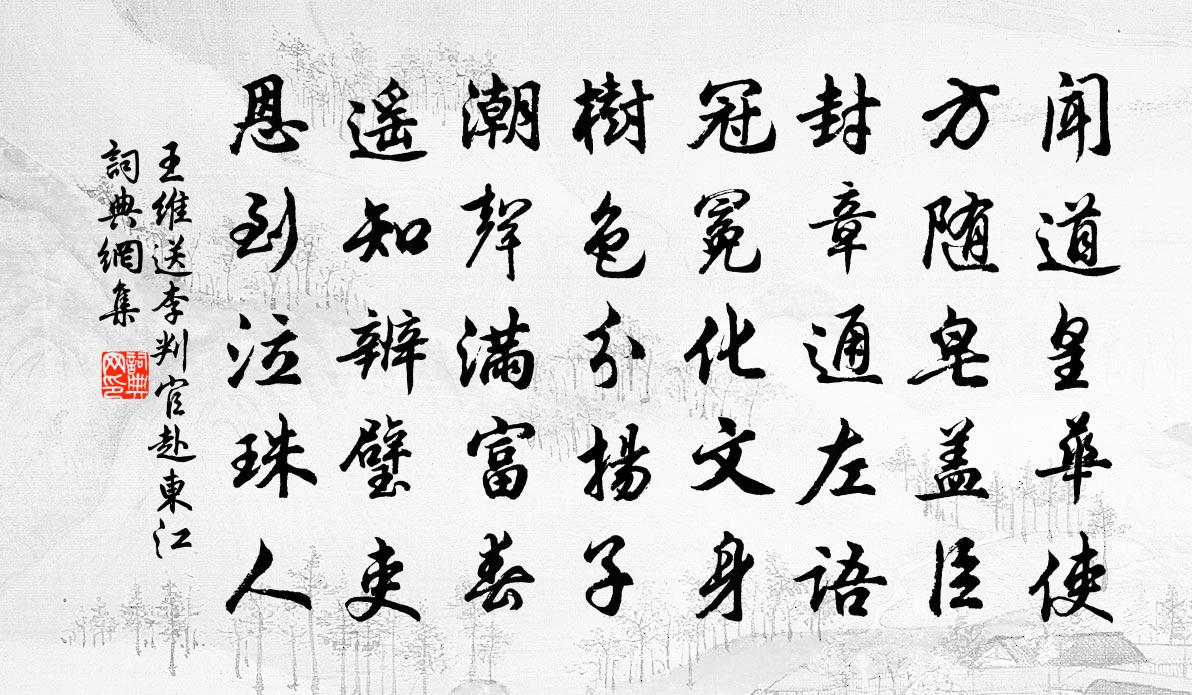 聞道皇華使
方随皂盖臣
封章通左語
冠冕化文身
樹色分揚子
潮聲滿富春
遥知辨璧吏
恩到泣珠人
王維送李判官赴東江
詞典網集
詞典
网印